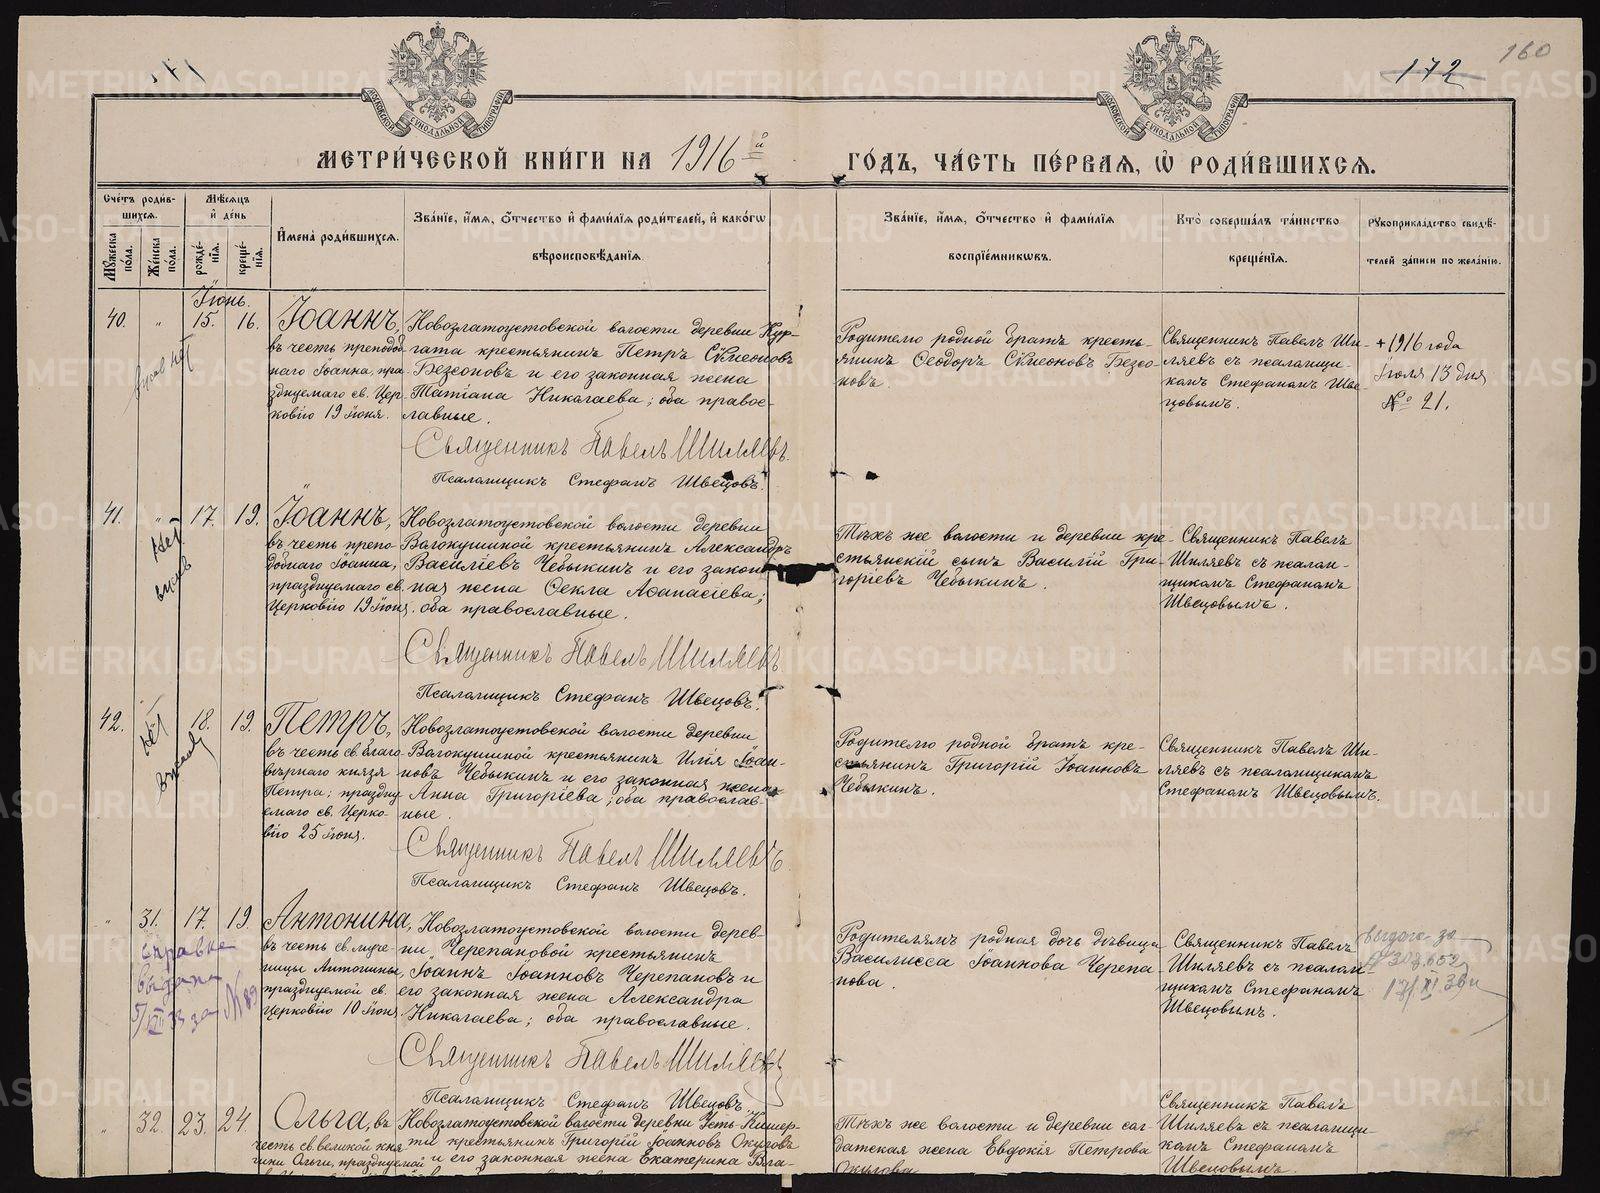 160
172
МОСКОВСКОЙ СѴНОДАЛЬНОЙ ТИПОГРАФІИ
МОСКОВСКОЙ СѴНОДАЛЬНОЙ ТИПОГРАФІИ
МЕТРИ́ЧЕСКОЙ КНИ́ГИ НА 1916й ГО́ДЪ, ЧА́СТЬ ПЕ́РВАЯ, Ѡ҆ РОДИ́ВШИХСЯ.
Сче́тъ роди́в-
шихся.
Мꙋжеска по́ла.
Же́нска по́ла.
Мѣ́сяцъ
и҆ де́нь
рожде́-
нїя.
креще́-
нїя.
И҆мена̀ роди́вшихся.
Зва́нїе, и҆́мя, ѻ҆́тчество и҆ фами́лїя роди́телей, и҆ како́гѡ
вѣроисповѣ́данїя.
Зва́нїе, и҆́мя, ѻ҆́тчество и҆ фами́лїя
воспрїе́мникѡвъ.
Кто̀ соверша́лъ та́инство
креще́нїя.
Рꙋкоприкла́дство свидѣ́-
телей за́писи по жела́нїю.
Іюнь.
40. „ 15. 16.
Іоаннъ,
въ честь преподоб
наго Іоанна, пра
зднуемаго св. Цер
ковію 19 іюня.
Новозлатоустовской волости деревни Кур-
гата крестьянинъ Петръ Сѵмеоновъ
Безсоновъ и его законная жена
Татіана Николаева; оба право-
славные.
Священникъ Павелъ Шиляевъ.
Псаломщикъ Стефанъ Швецовъ.
Родителю родной братъ кресть-
янинъ Ѳеодоръ Сѵмеоновъ Безсо
новъ.
Священникъ Павелъ Ши-
ляевъ съ псаломщи-
комъ Стефаномъ Шве
цовымъ.
+ 1916 года
Іюля 13 дня
№ 21.
41. „ 17. 19.
Нет
Іоаннъ,
въ честь препо-
добнаго Іоанна,
празднуемаго св.
Церковію 19 іюня.
Новозлатоустовской волости деревни
Волокушиной крестьянинъ Александръ
Василіевъ Чебыкинъ и его закон
ная жена Ѳекла Аѳанасіева;
оба православные.
Священникъ Павелъ Шиляевъ
Псаломщикъ Стефанъ Швецовъ.
Тѣхъ же волости и деревни кре-
стьянскій сынъ Василій Гри-
горіевъ Чебыкинъ.
Священникъ Павелъ
Шиляевъ съ псалом-
щикомъ Стефаномъ
Швецовымъ.
42. 18. 19.
Нет
Петръ,
въ честь св. благо-
вѣрнаго князя
Петра; праздну
емаго св. Церко-
вію 25 іюня.
Новозлатоустовской волости деревни
Волокушиной крестьянинъ Илія Іоан-
новъ Чебыкинъ и его законная жена
Анна Григоріева; оба православ-
ные.
Священникъ Павелъ Шиляевъ
Псаломщикъ Стефанъ Швецовъ.
Родителю родной братъ кре-
стьянинъ Григорій Іоанновъ
Чебыкинъ.
Священникъ Павелъ Ши-
ляевъ съ псаломщикомъ
Стефаномъ Швецовымъ.
„ 31. 17. 19.
справка
выдана
Антонина,
въ честь св. муче-
ницы Антонины,
празднуемой св.
Церковію 10 іюня.
Новозлатоустовской волости дерев-
ни Черепановой крестьянинъ
Іоаннъ Іоанновъ Черепановъ и
его законная жена Александра
Николаева; оба православные.
Священникъ Павелъ Шиляевъ
Псаломщикъ Стефанъ Швецовъ.
Родителямъ родная дочь дѣвица
Василисса Іоаннова Черепа
нова.
Священникъ Павелъ
Шиляевъ съ псалом-
щикомъ Стефаномъ
Швецовымъ.
„ 32. 23. 24.
Ольга, въ
честь св. великой кня
гини Ольги, празднуемой
Новозлатоустовской волости деревни Усть-Кишер-
ти крестьянинъ Григорій Іоанновъ Окуловъ
и его законная жена Екатерина Вла-
Тѣхъ же волости и деревни сол-
датская жена Евдокія Петрова
Окулова
Священникъ Павелъ
Шиляевъ съ псаломщи-
комъ Стефаномъ
Швецовымъ.
METRIKI.GASO-URAL.RU